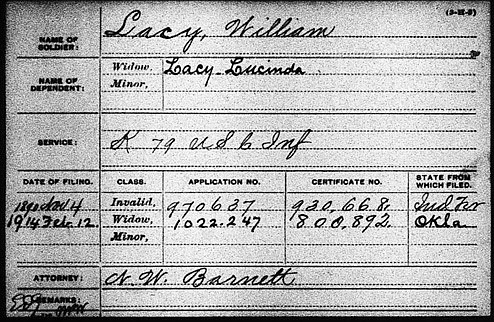 (3-H-8)
NAME OF SOLDIER: Lacy, William
NAME OF DEPENDENT: Widow, Lacy Lucinda
Minor,
SERVICE: K 79 U S C Inf
DATE OF FILING. CLASS. APPLICATION NO. CERTIFICATE NO. STATE FROM WHICH FILED.
1890 Nov. 4 Invalid, 970637 930.668. Ind Ter
1914 Feb. 12 Widow, 1022.247 800,892 Okla
Minor,
ATTORNEY: N. W. Barnett
REMARKS: